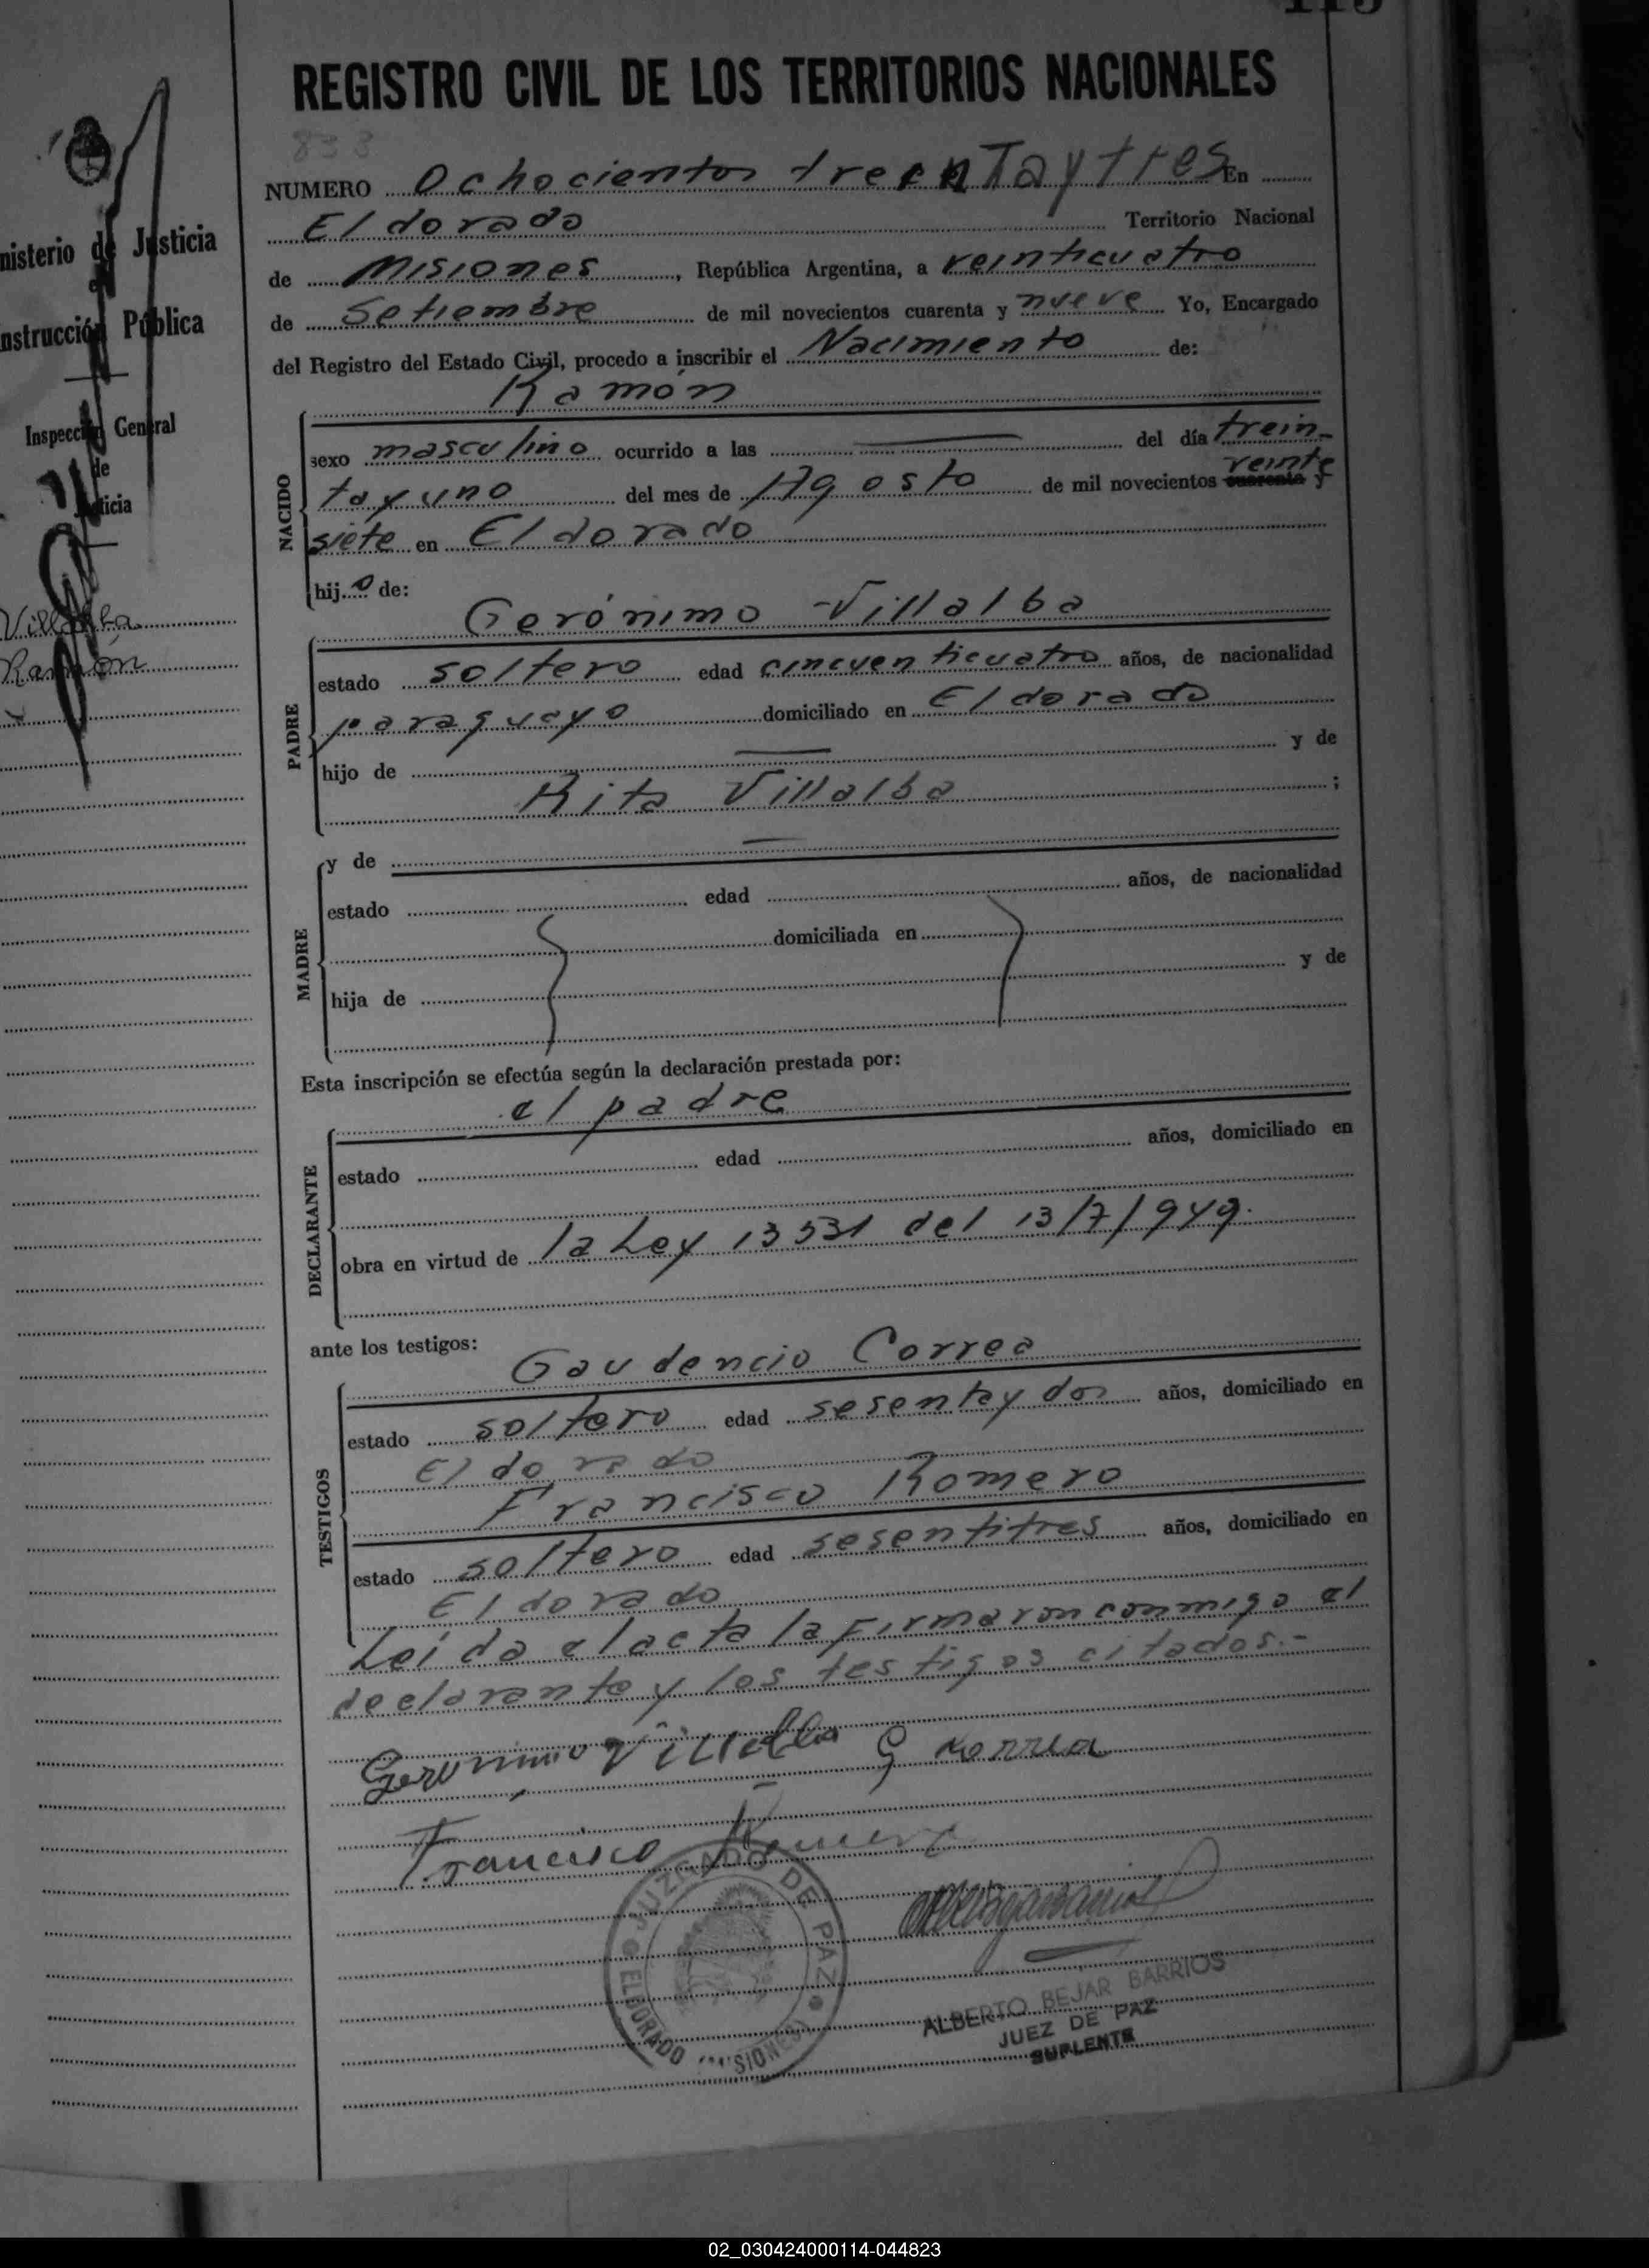 115
REGISTRO CIVIL DE LOS TERRITORIOS NACIONALES
833
NUMERO Ochocientos treentaytres En
Eldorado Territorio Nacional
de Misiones, República Argentina, a veinticuatro
de Setiembre de mil novecientos cuarenta y nueve Yo, Encargado
del Registro del Estado Civil, procedo a inscribir el Nacimiento de:
Ramón
NACIDO
sexo masculino ocurrido a las del día trein-
tayuno del mes de Agosto de mil novecientos cuarenta veinte y
siete en Eldorado
hijo de:
Gerónimo Villalba
PADRE
estado soltero edad cincuenticuatro años, de nacionalidad
paraguayo domiciliado en Eldorado
hijo de y de
Rita Villalba ;
MADRE
y de
estado edad años, de nacionalidad
domiciliada en
hija de y de
Esta inscripción se efectúa según la declaración prestada por:
el padre
DECLARANTE
estado edad años, domiciliado en
obra en virtud de la Ley 13531 del 13/7/949.
ante los testigos:
Gaudencio Correa
TESTIGOS
estado soltero edad sesentaydos años, domiciliado en
Eldorado
Francisco Romero
estado soltero edad sesentitres años, domiciliado en
Eldorado
Leída el acta la firmaron conmigo el
declarante y los testigos citados.-
Geronimo Villalba G Korrea
Francisco Romero
JUZGADO DE PAZ
ELDORADO (MISIONES)
ALBERTO BEJAR BARRIOS
JUEZ DE PAZ
SUPLENTE
nisterio de Justicia
e
nstrucción Pública
Inspección General
de
Justicia
Villalba
Ramón
02_030424000114-044823